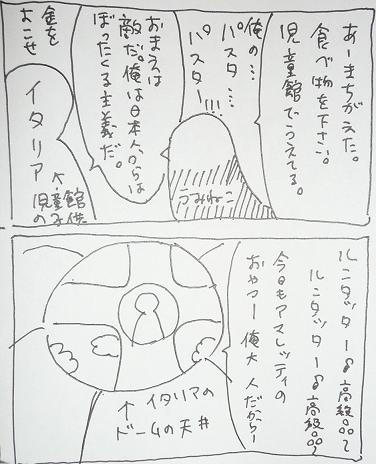 あーまちがえた。
食べ物を下さい。
児童館でうえてる。
俺の…
パスタ…
パスター!!!
うみねこ
おまえは
敵だ。俺は日本人からは
ぼったくる主義だ。
金を
よこせ
イタリア
児童館
の子供
ルンタッター♪高級♪♪♪～
ルンタッター♪高級♪♪♪～
今日もアマレッティの
おやつー俺大人だからー
↑イタリアの
ドームの天井